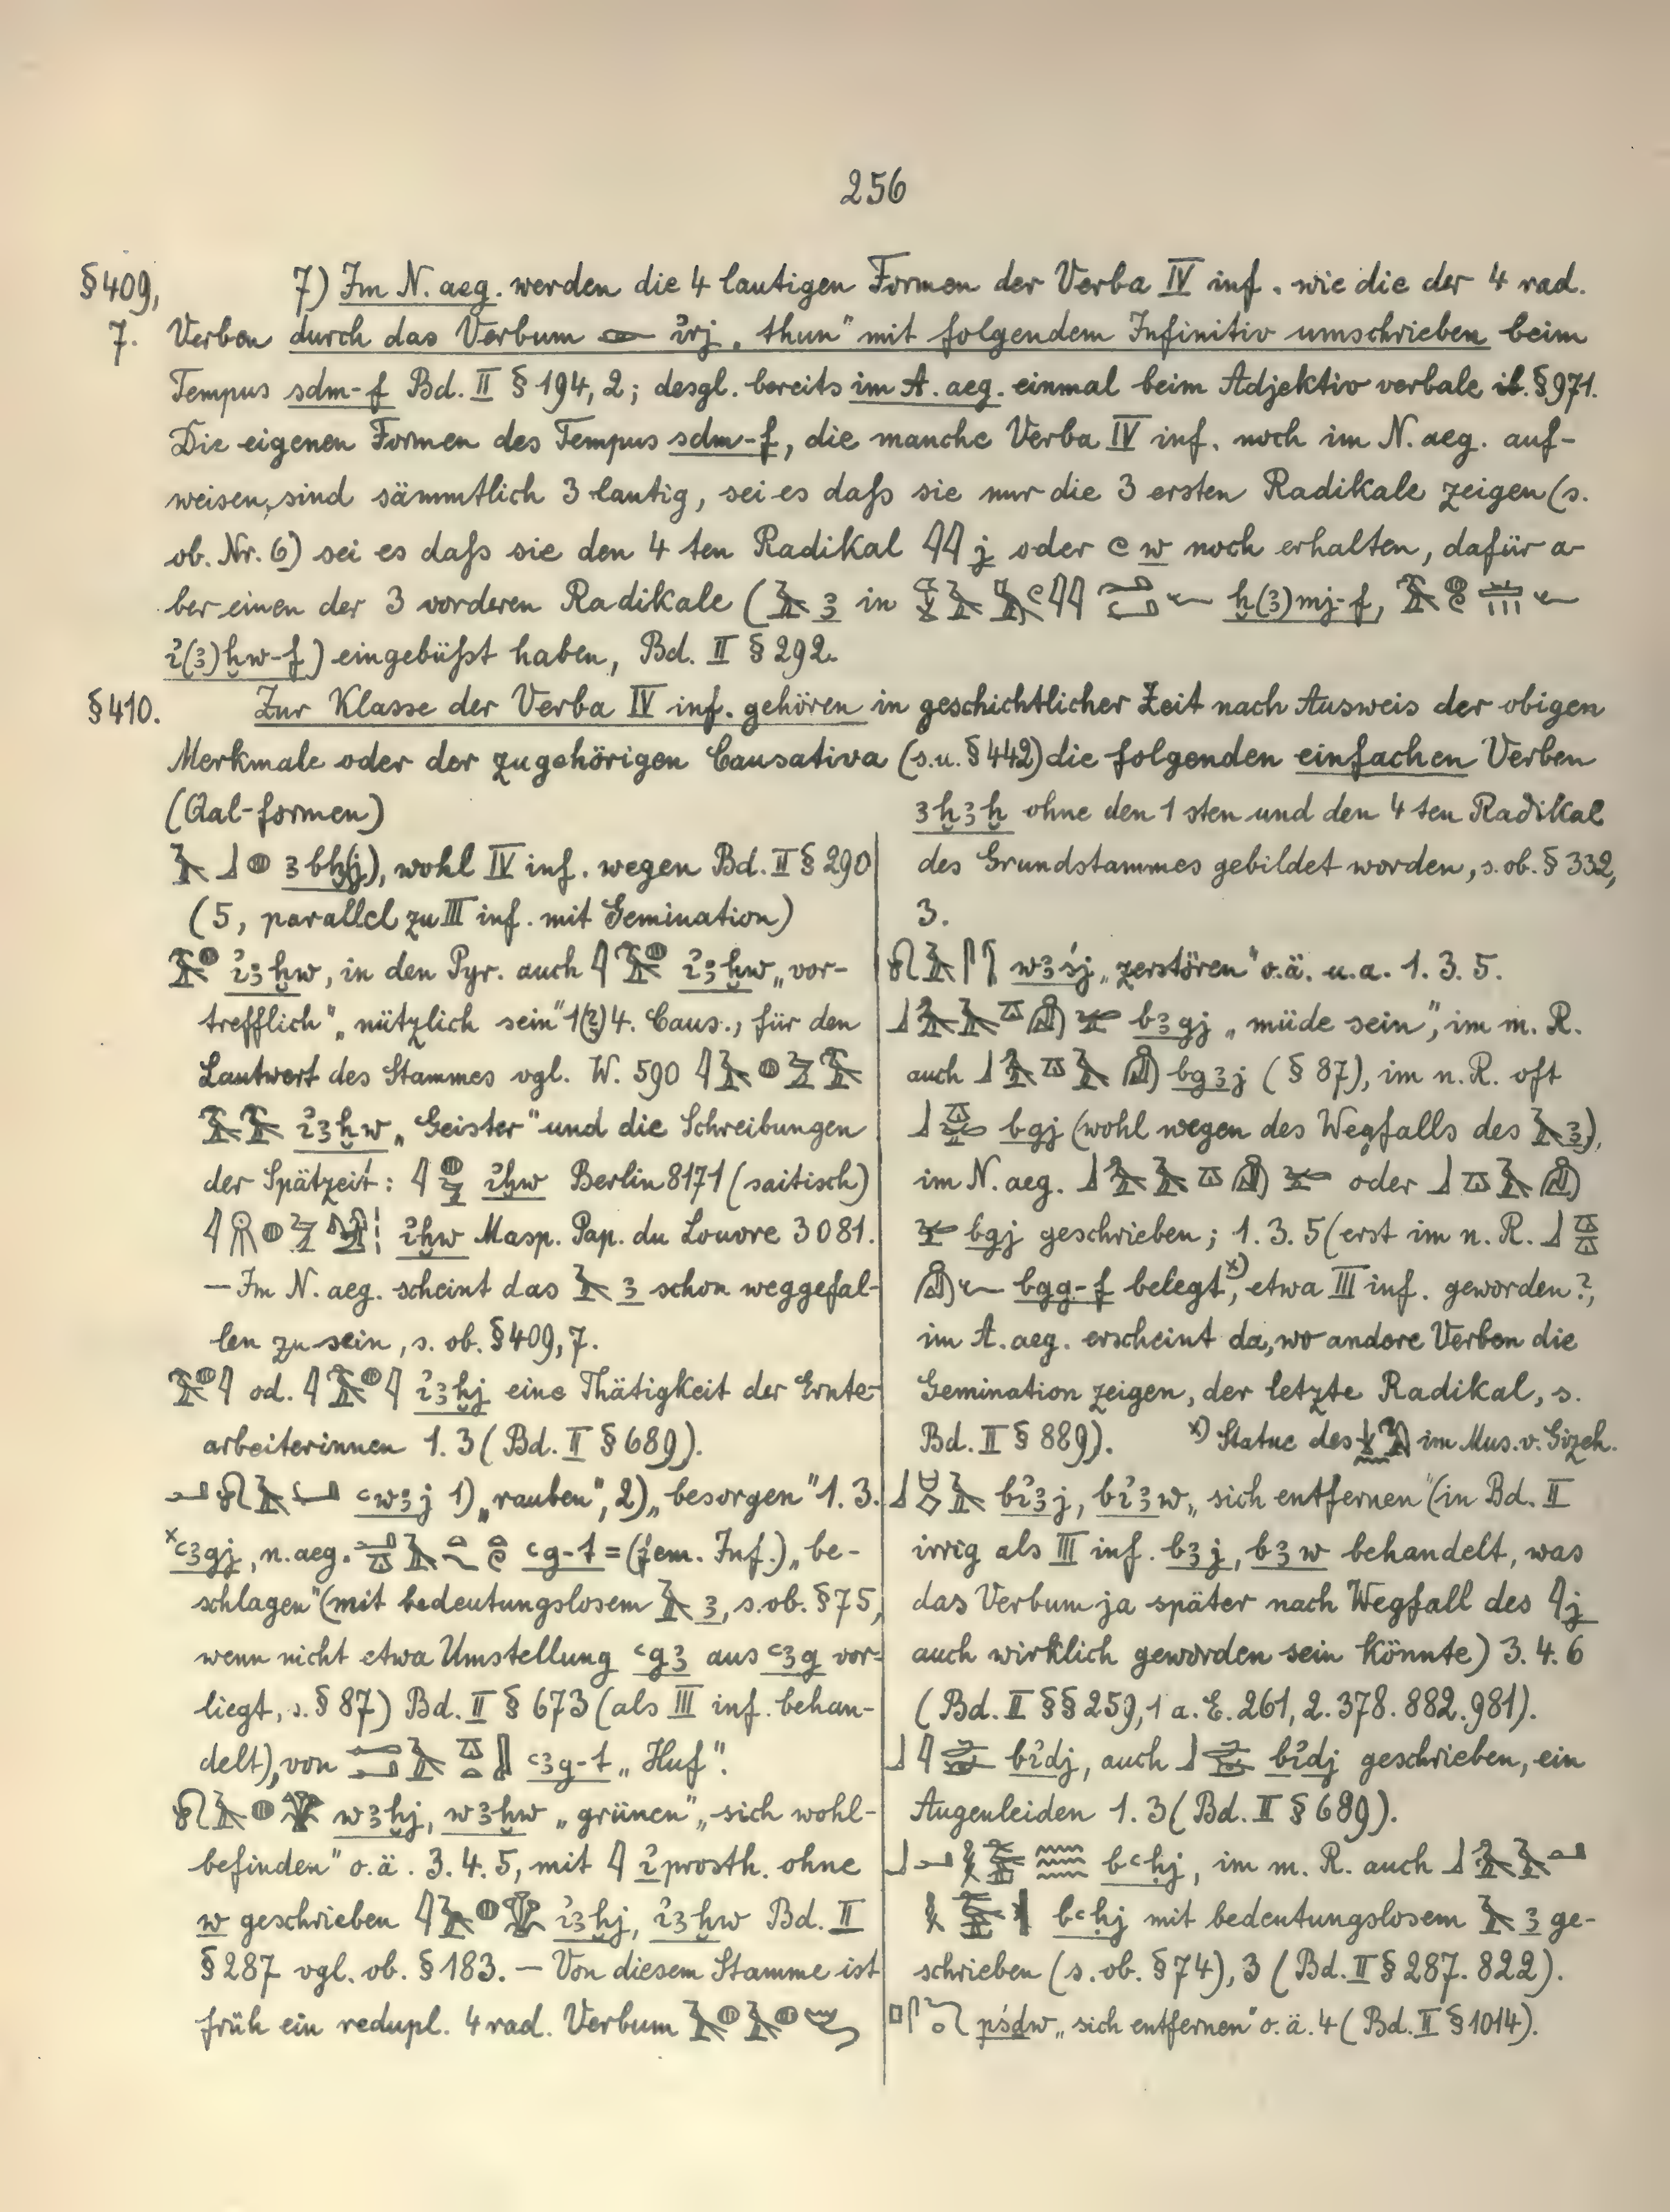 256
§409,
7.
7) Im N. aeg. werden die 4 lautigen Formen der Verba IV inf. wie die der 4 rad.
Verben durch das Verbum 𓁹 ỉrj „thun" mit folgendem Infinitiv umschrieben beim
Tempus sdm-f Bd. II § 194, 2; desgl. bereits im A. aeg. einmal beim Adjektiv verbale ib. § 971.
Die eigenen Formen des Tempus sdm-f, die manche Verba IV inf. noch im N. aeg. auf-
weisen, sind sämmtlich 3 lautig, sei es daſs sie nur die 3 ersten Radikale zeigen (s.
ob. Nr. 6) sei es daſs sie den 4 ten Radikal 𓇋𓇋 j oder 𓏲 w noch erhalten, dafür a-
ber einen der 3 vorderen Radikale (𓄿 ꜣ in ẖ(ꜣ)mj-f,
ỉ(ꜣ)ḫw-f) eingebüſst haben, Bd. II § 292.
§410.
Zur Klasse der Verba IV inf. gehören in geschichtlicher Zeit nach Ausweis der obigen
Merkmale oder der zugehörigen Causativa (s.u. § 442) die folgenden einfachen Verben
(Qal-formen)
𓄿𓃀𓐍 ꜣbḫ(j), wohl IV inf. wegen Bd. II § 290
(5, parallel zu III inf. mit Gemination)
𓅜𓐍 ỉꜣḫw, in den Pyr. auch 𓇋𓅜𓐍 ỉꜣḫw „vor-
trefflich", „nützlich sein" 1(2)4. Caus., für den
Lautwert des Stammes vgl. W. 590 𓇋𓄿𓐍𓅱𓅜
𓅜𓅜 ỉꜣḫw „Geister" und die Schreibungen
der Spätzeit: 𓇋𓐍𓅱 ỉḫw Berlin 8171 (saitisch)
ỉḫw Masp. Pap. du Louvre 3081.
— Im N. aeg. scheint das 𓄿 ꜣ schon weggefal-
len zu sein, s. ob. § 409, 7.
𓅜𓐍𓇋 od. 𓇋𓅜𓐍𓇋 ỉꜣḫj eine Thätigkeit der Ernte-
arbeiterinnen 1. 3 (Bd. II § 689).
𓂝𓍯𓄿𓂡 ꜥwꜣj 1) „rauben", 2) „besorgen" 1. 3.
×ꜥꜣgj, n. aeg. ꜥg-t = (fem. Inf.) „be-
schlagen" (mit bedeutungslosem 𓄿 ꜣ, s. ob. § 75,
wenn nicht etwa Umstellung ꜥgꜣ aus ꜥꜣg vor-
liegt, s. § 87) Bd. II § 673 (als III inf. behan-
delt), von ꜥꜣg-t „Huf".
𓍯𓄿𓐍𓆷 wꜣḫj, wꜣḫw „grünen", „sich wohl-
befinden" o.ä. 3. 4. 5, mit 𓇋 ỉ prosth. ohne
w geschrieben 𓇋𓄿𓐍𓆷 ỉꜣḫj, ỉꜣḫw Bd. II
§ 287 vgl. ob. § 183. — Von diesem Stamme ist
früh ein redupl. 4 rad. Verbum 𓄿𓐍𓄿𓐍
ꜣḫꜣḫ ohne den 1 sten und den 4 ten Radikal
des Grundstammes gebildet worden, s. ob. § 332,
3.
𓍯𓄿𓋴 wꜣśj „zerstören" o.ä. u.a. 1. 3. 5.
bꜣgj „müde sein", im m. R.
auch bgꜣj (§ 87), im n. R. oft
bgj (wohl wegen des Wegfalls des 𓄿 ꜣ),
im N. aeg. oder
bgj geschrieben; 1. 3. 5 (erst im n. R.
bgg-f belegt×), etwa III inf. geworden?,
im A. aeg. erscheint da, wo andere Verben die
Gemination zeigen, der letzte Radikal, s.
Bd. II § 889). ×) Statue des im Mus. v. Gizeh.
bỉꜣj, bỉꜣw „sich entfernen" (in Bd. II
irrig als III inf. bꜣj, bꜣw behandelt, was
das Verbum ja später nach Wegfall des 𓇋 j
auch wirklich geworden sein könnte) 3. 4. 6
(Bd. II §§ 259, 1 a. E. 261, 2. 378. 882. 981).
bỉdj, auch bỉdj geschrieben, ein
Augenleiden 1. 3 (Bd. II § 689).
bꜥḥj, im m. R. auch
bꜥḥj mit bedeutungslosem 𓄿 ꜣ ge-
schrieben (s. ob. § 74), 3 (Bd. II § 287. 822).
pśdw „sich entfernen" o.ä. 4 (Bd. II § 1014).